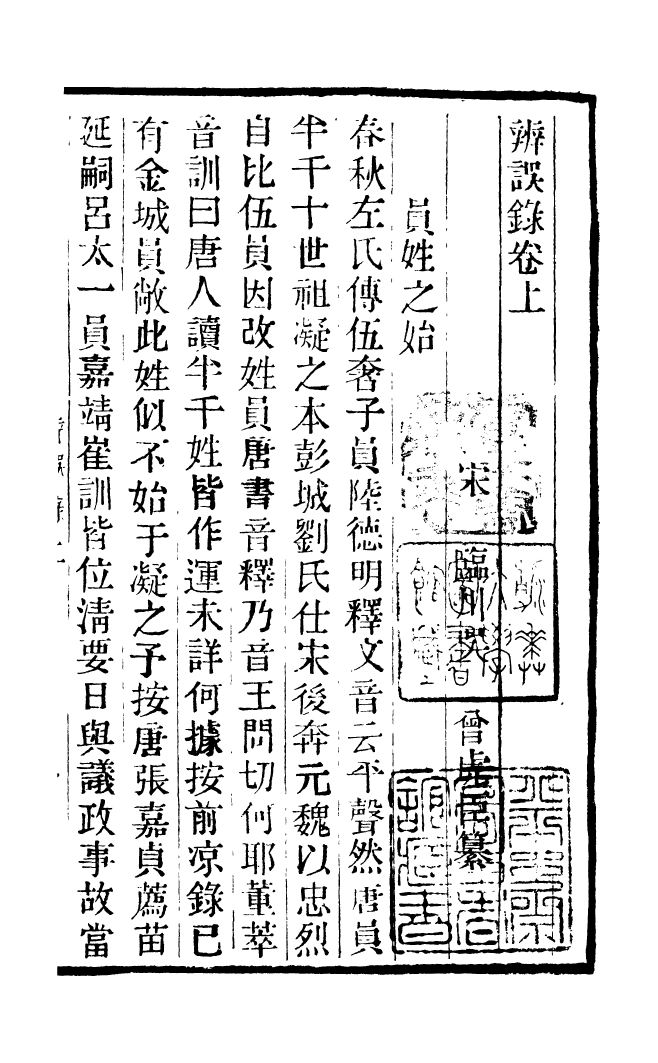 辨誤錄卷上
宋 臨川 曾 纂
員姓之始
春秋左氏傳伍奢子員陸德明釋文音云平聲然唐員
半千十世祖凝之本彭城劉氏仕宋後奔元魏以忠烈
自比伍員因改姓員唐書音釋乃音王問切何耶董萃
音訓曰唐人讀半千姓皆作運未詳何據按前涼錄已
有金城員敞此姓似不始于凝之予按唐張嘉貞薦苗
延嗣呂太一員嘉靖崔訓皆位淸要日與議政事故當